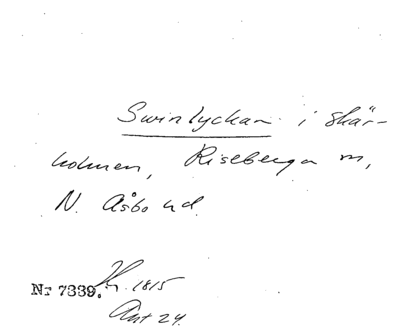 Swinlyckan i skär-
holmen, Riseberga sn,
N. Åsbo hd.
Nr 7339. 1815
Akt 24.